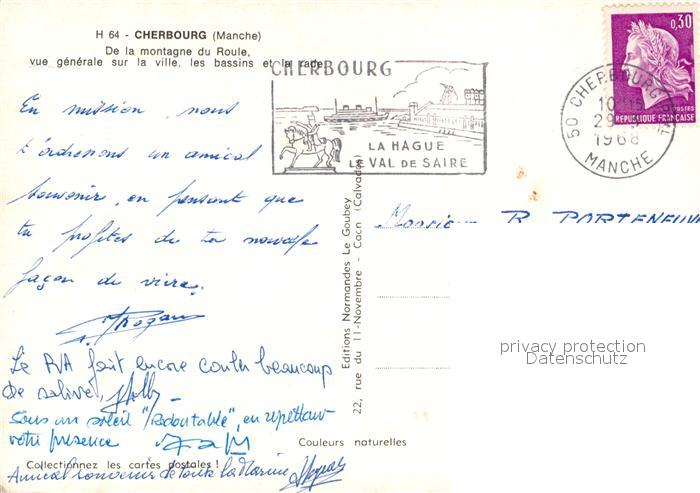 H 64 - CHERBOURG (Manche)
De la montagne du Roule,
vue générale sur la ville, les bassins et la rade.
CHERBOURG
LA HAGUE
LE VAL DE SAIRE
0,30
POSTES
REPUBLIQUE FRANÇAISE
50 CHERBOURG
10H15
29
1968
MANCHE
En mission, nous
t'adressons un amical
souvenir, en pensant que
tu profites de ta nouvelle
façon de vivre.
Le PVA fait encore couler beaucoup
de salive.
Sous un soleil "Redoutable", en regrettant
votre présence
Amical souvenir de toute la Marine
Monsieur R PARTENEUVE
Editions Normandes Le Goubey
22, rue du 11-Novembre - Caen (Calvados)
privacy protection
Datenschutz
Couleurs naturelles
Collectionnez les cartes postales !